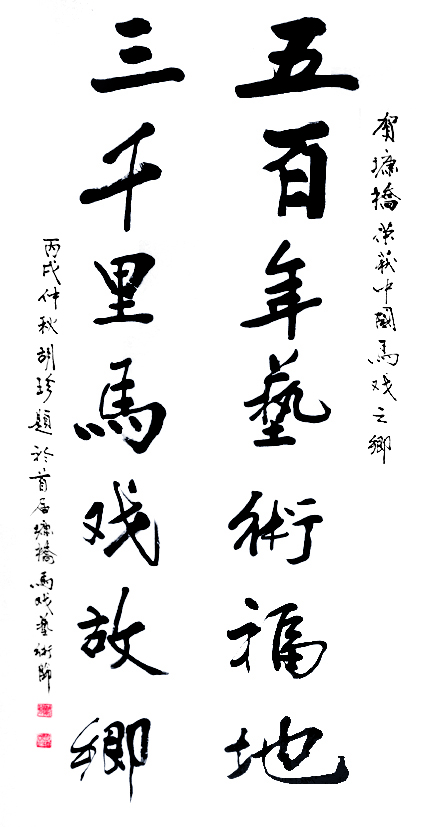 贺墉橋荣获中國馬戏之鄉
五百年藝術福地
三千里馬戏故鄉
丙戌仲秋胡珍題於首届墉橋馬戏藝術節